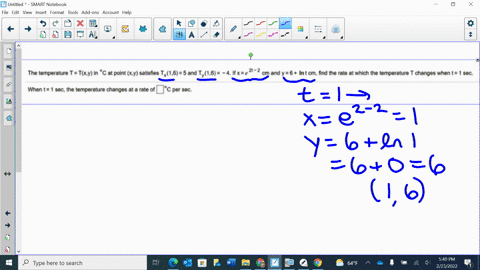 Untitled * - SMART Notebook
File Edit View Insert Format Tools Add-ons Account Help
The temperature T = T(x,y) in °C at point (x,y) satisfies Tx(1,6) = 5 and Ty(1,6) = −4. If x = e^(2t−2) cm and y = 6 + ln t cm, find the rate at which the temperature T changes when t = 1 sec.
When t = 1 sec, the temperature changes at a rate of °C per sec.
t = 1 →
x = e^(2−2) = 1
y = 6 + ln 1
= 6 + 0 = 6
(1, 6)
Type here to search
64°F
5:49 PM
2/23/2022